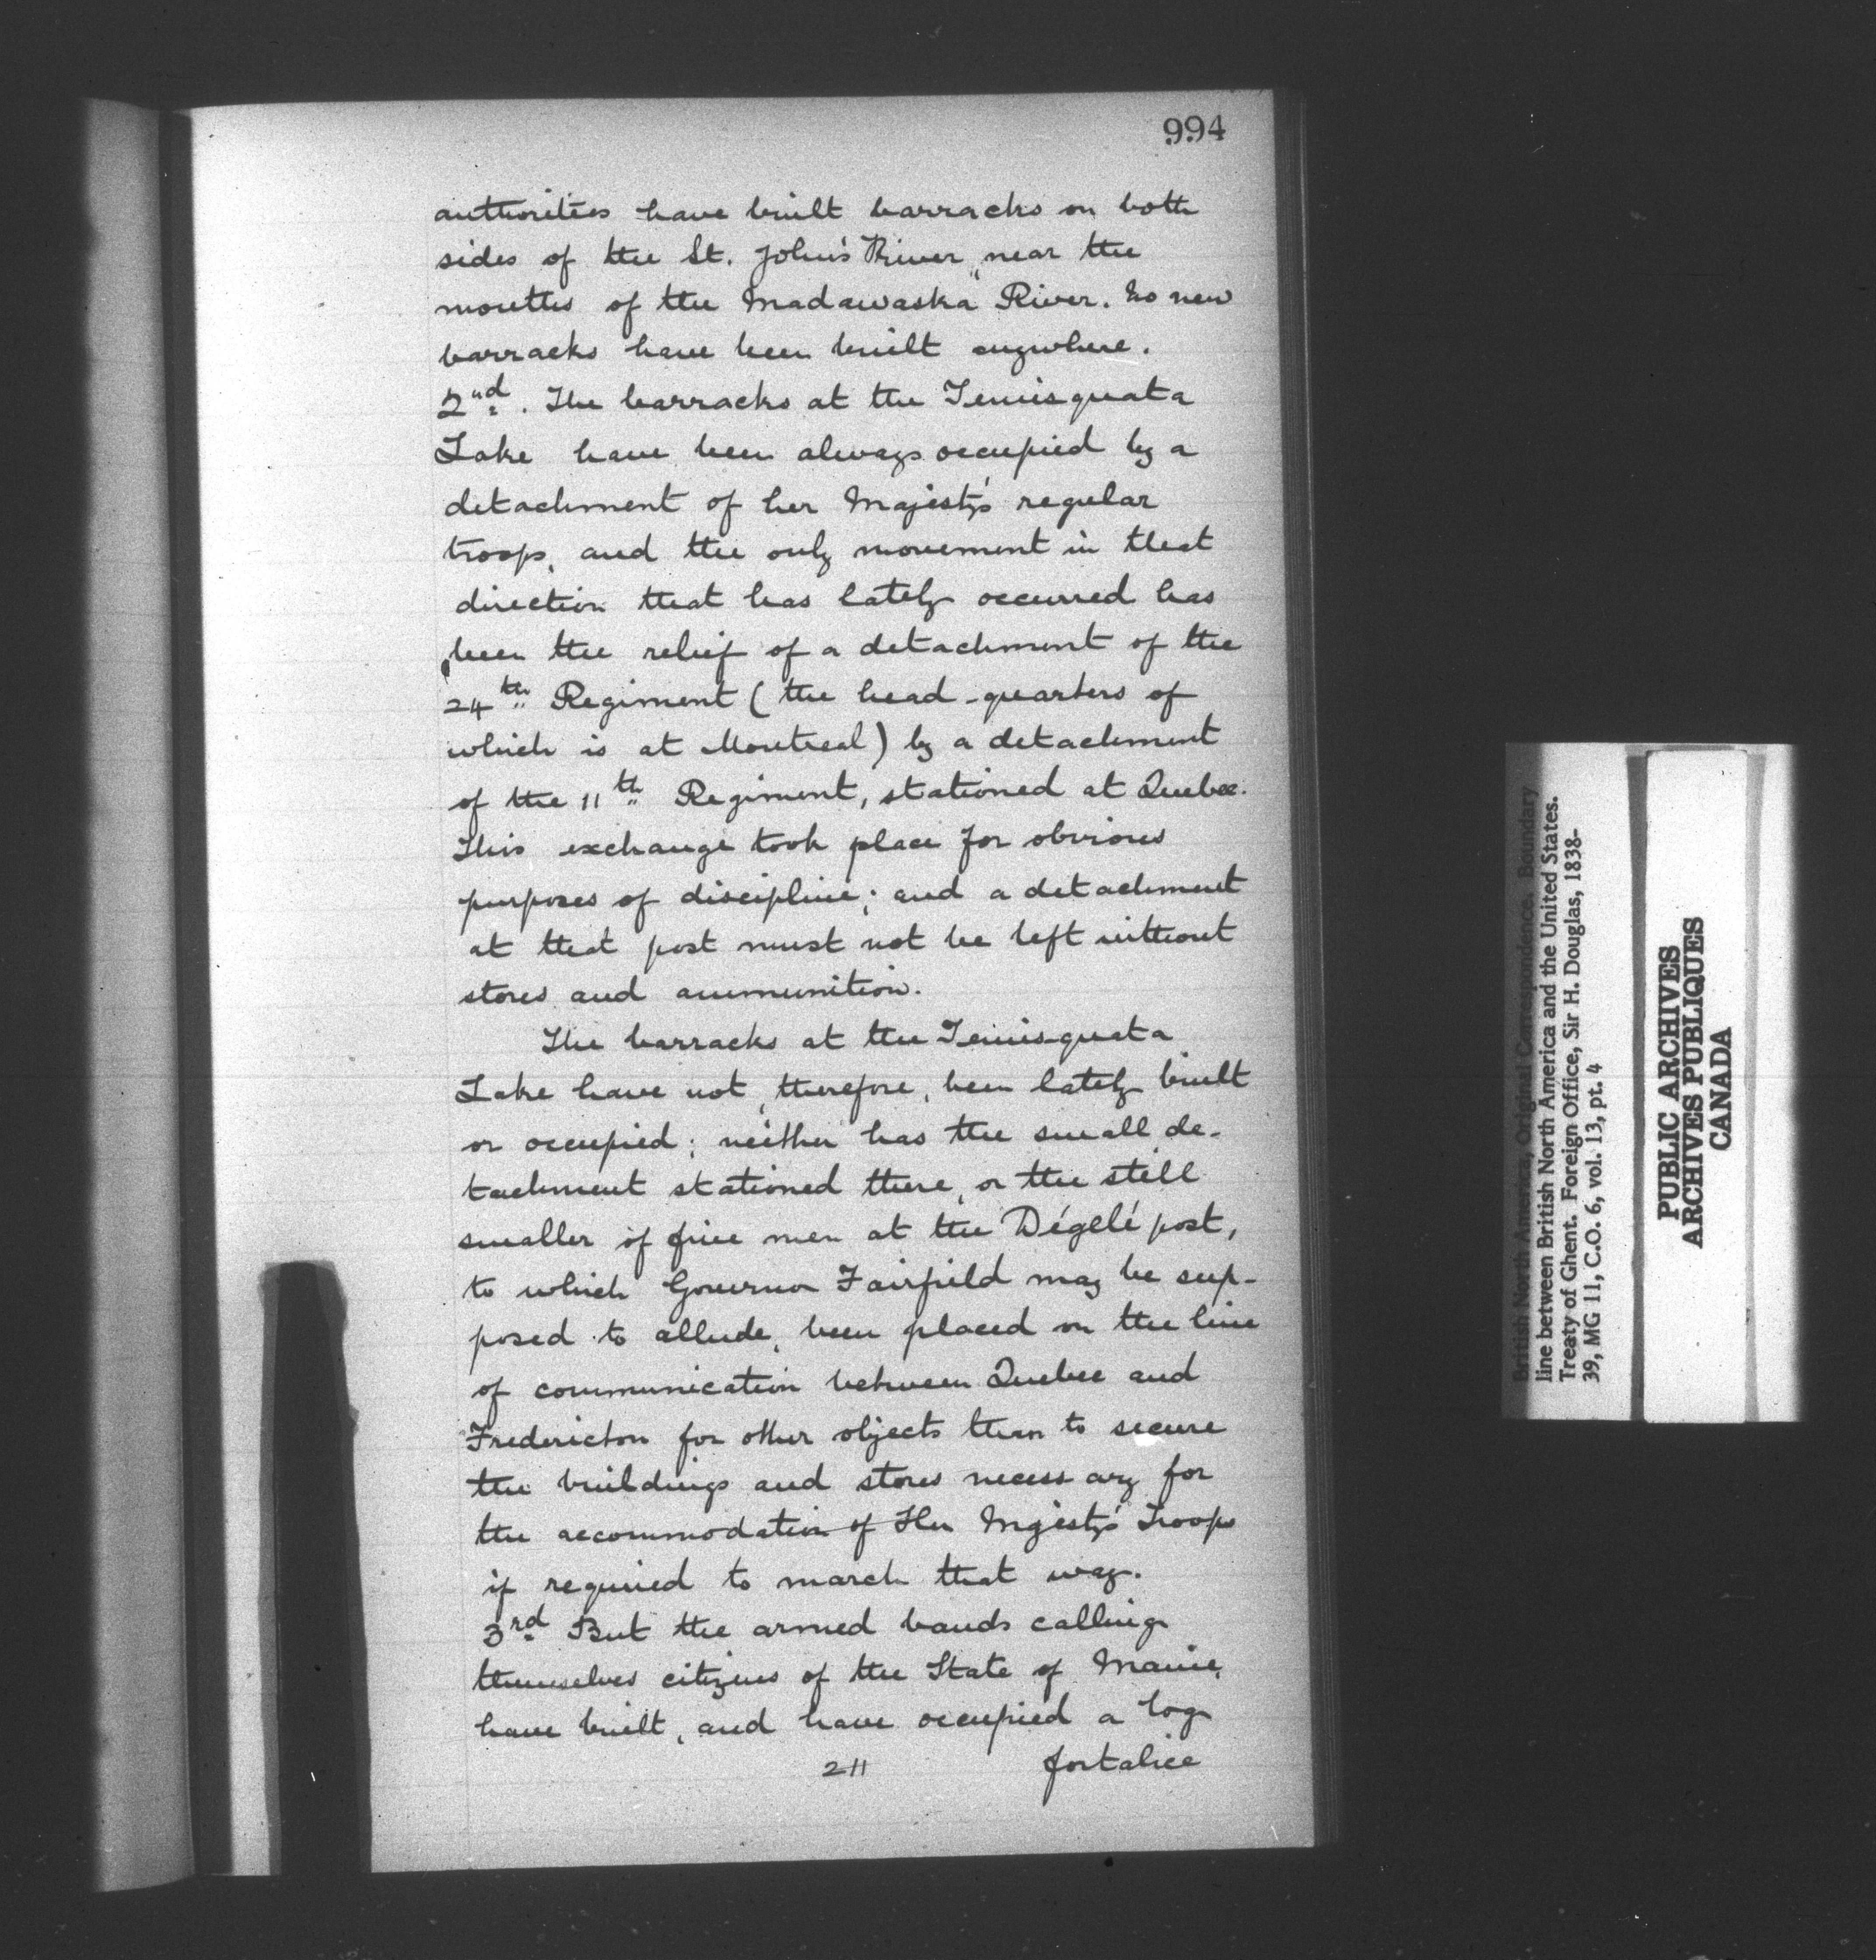 994
authorities have built barracks on both
sides of the St. John's River, "near the
mouths of the Madawaska River. No new
barracks have been built anywhere.
2nd. The barracks at the Temisquata
Lake have been always occupied by a
detachment of her Majesty's regular
troops, and the only movement in that
direction that has lately occurred has
been the relief of a detachment of the
24th Regiment (the head-quarters of
which is at Montreal) by a detachment
of the 11th Regiment, stationed at Quebec.
This exchange took place for obvious
purposes of discipline; and a detachment
at that post must not be left without
stores and ammunition.
The barracks at the Temisquata
Lake have not, therefore, been lately built
or occupied; neither has the small de-
tachment stationed there, or the still
smaller of five men at the Dégelé post,
to which Governor Fairfield may be sup-
posed to allude, been placed on the line
of communication between Quebec and
Fredericton for other objects than to secure
the buildings and stores necessary for
the accommodation of Her Majesty's Troops
if required to march that way.
3rd But the armed bands calling
themselves citizens of the State of Maine,
have built, and have occupied a log
211 fortalice
British North America, Original Correspondence. Boundary
line between British North America and the United States.
Treaty of Ghent. Foreign Office, Sir H. Douglas, 1838-
39, MG 11, C.O. 6, vol. 13, pt. 4
PUBLIC ARCHIVES
ARCHIVES PUBLIQUES
CANADA